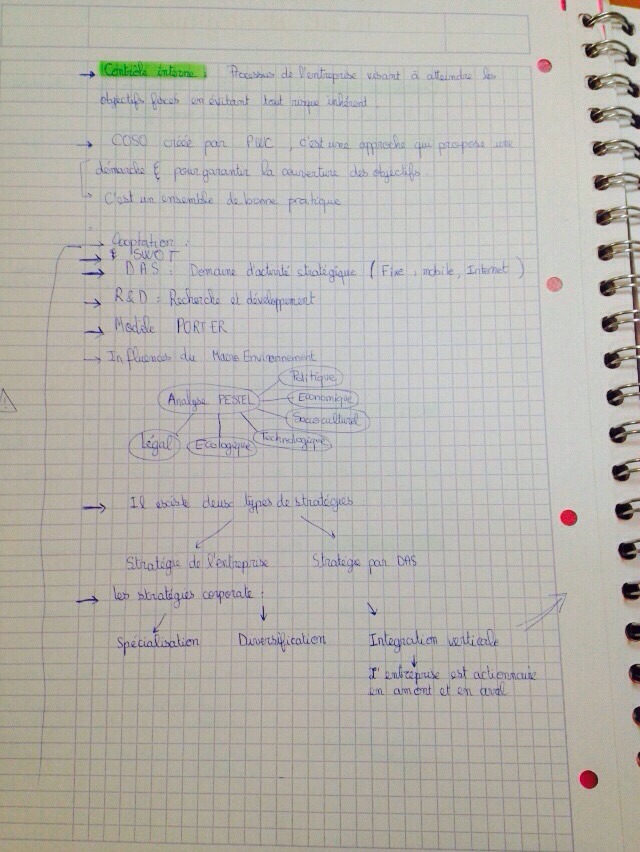 → Contrôle interne : Processus de l'entreprise visant à atteindre les
objectifs fixés en évitant tout risque inhérent.
→ COSO créée par PWC, c'est une approche qui propose une
démarche & pour garantir la couverture des objectifs.
→ C'est un ensemble de bonne pratique
→ Cooptation :
→ SWOT
→ DAS : Domaine d'activité stratégique ( Fixe, mobile, Internet )
→ R&D : Recherche et développement
→ Modèle PORTER
→ Influences du Macro Environnement
Politique
Analyse PESTEL
Economique
Socioculturel
Légal
Ecologique
Technologique
→ Il existe deux types de stratégies
Stratégie de l'entreprise
Stratégie par DAS
→ les stratégies corporate :
Spécialisation
Diversification
Intégration verticale
L'entreprise est actionnaire
en amont et en aval